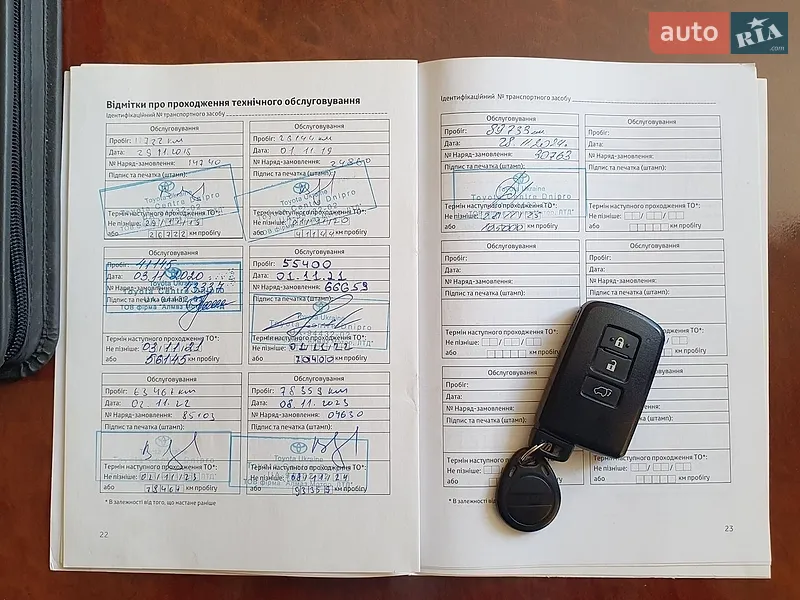 auto RIA .com
Відмітки про проходження технічного обслуговування
Ідентифікаційний № транспортного засобу
Обслуговування
Пробіг: км
Дата: 29.11.2018
№ Наряд-замовлення: 14740
Підпис та печатка (штамп):
Toyota Ukraine
Toyota Centre Dnipro
Термін наступного проходження ТО*:
Не пізніше: 29/11/19
або 26722 км пробігу
Обслуговування
Пробіг: 26144 км
Дата: 01.11.19
№ Наряд-замовлення: 24860
Підпис та печатка (штамп):
Toyota Ukraine
Toyota Centre Dnipro
Термін наступного проходження ТО*:
Не пізніше: 01/11/20
або 41144 км пробігу
Обслуговування
Пробіг: 41145
Дата: 03.11.2020
№ Наряд-замовлення:
Підпис та печатка (штамп):
Toyota Ukraine
Toyota Centre Dnipro
Термін наступного проходження ТО*:
Не пізніше: 03.11.21
або 56145 км пробігу
Обслуговування
Пробіг: 55400
Дата: 01.11.21
№ Наряд-замовлення: 66659
Підпис та печатка (штамп):
Toyota Ukraine
Toyota Centre Dnipro
Термін наступного проходження ТО*:
Не пізніше: 01/11/22
або 70400 км пробігу
Обслуговування
Пробіг: 63464 км
Дата: 02.11.22
№ Наряд-замовлення: 85103
Підпис та печатка (штамп):
Термін наступного проходження ТО*:
Не пізніше: 02/11/23
або 78464 км пробігу
Обслуговування
Пробіг: 78359 км
Дата: 08.11.2023
№ Наряд-замовлення: 04630
Підпис та печатка (штамп):
Toyota Ukraine
Термін наступного проходження ТО*:
Не пізніше: 08/11/24
або 93359 км пробігу
* В залежності від того, що настане раніше
22
Ідентифікаційний № транспортного засобу
Обслуговування
Пробіг: 89733 км
Дата: 28.11.2024
№ Наряд-замовлення: 30763
Підпис та печатка (штамп):
Toyota Ukraine
Toyota Centre Dnipro
Термін наступного проходження ТО*:
Не пізніше:
або км пробігу
Обслуговування
Пробіг:
Дата:
№ Наряд-замовлення:
Підпис та печатка (штамп):
Термін наступного проходження ТО*:
Не пізніше:
або км пробігу
Обслуговування
Пробіг:
Дата:
№ Наряд-замовлення:
Підпис та печатка (штамп):
Термін наступного проходження ТО*:
Не пізніше:
або км пробігу
Обслуговування
Термін наступного проходження ТО*:
км пробігу
Обслуговування
Пробіг:
Дата:
№ Наряд-замовлення:
Підпис та печатка (штамп):
Термін
Не пізніше:
або
Обслуговування
проходження ТО*:
км пробігу
* В залежності від
23